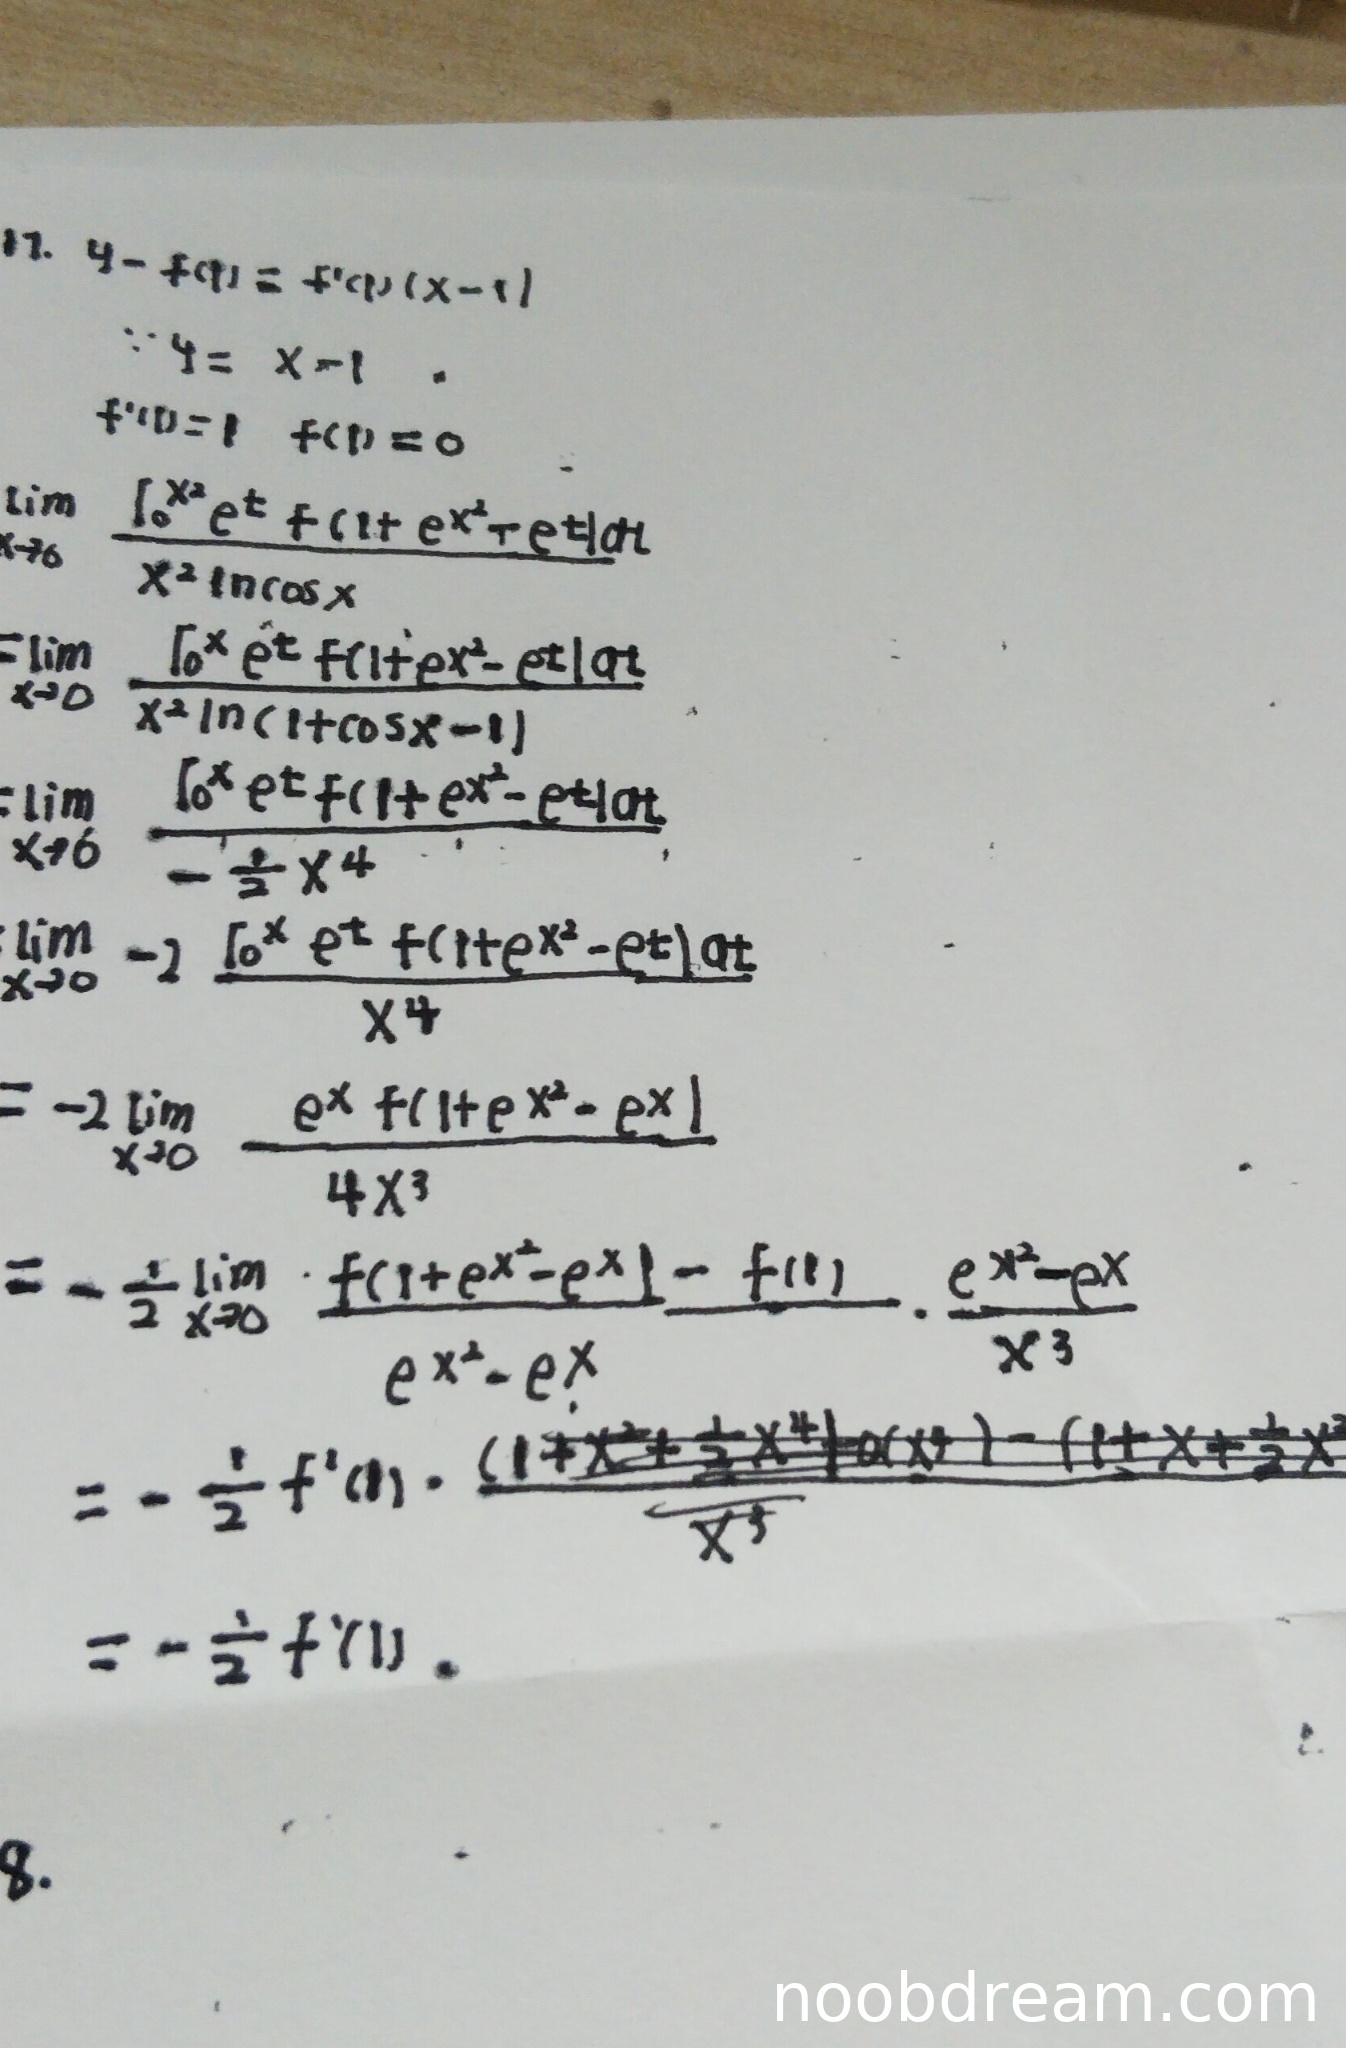 17. y - f(1) = f'(1)(x-1)
∵ y = x-1 .
f'(1)=1 f(1)=0
lim x→0 ∫₀^x² e^t f(1+e^x²-e^t)dt / x² ln cosx
= lim x→0 ∫₀^x e^t f(1+e^x²-e^t)dt / x² ln(1+cosx-1)
= lim x→0 ∫₀^x e^t f(1+e^x²-e^t)dt / -1/2 x⁴
= lim x→0 -2 ∫₀^x e^t f(1+e^x²-e^t)dt / x⁴
= -2 lim x→0 e^x f(1+e^x²-e^x) / 4x³
= -1/2 lim x→0 f(1+e^x²-e^x) - f(1) / e^x²-e^x · e^x²-e^x / x³
= -1/2 f'(1) · (1+x²+1/2x⁴)+o(x⁴) - (1+x+1/2x² / x³
= -1/2 f'(1).
8.
noobdream.com